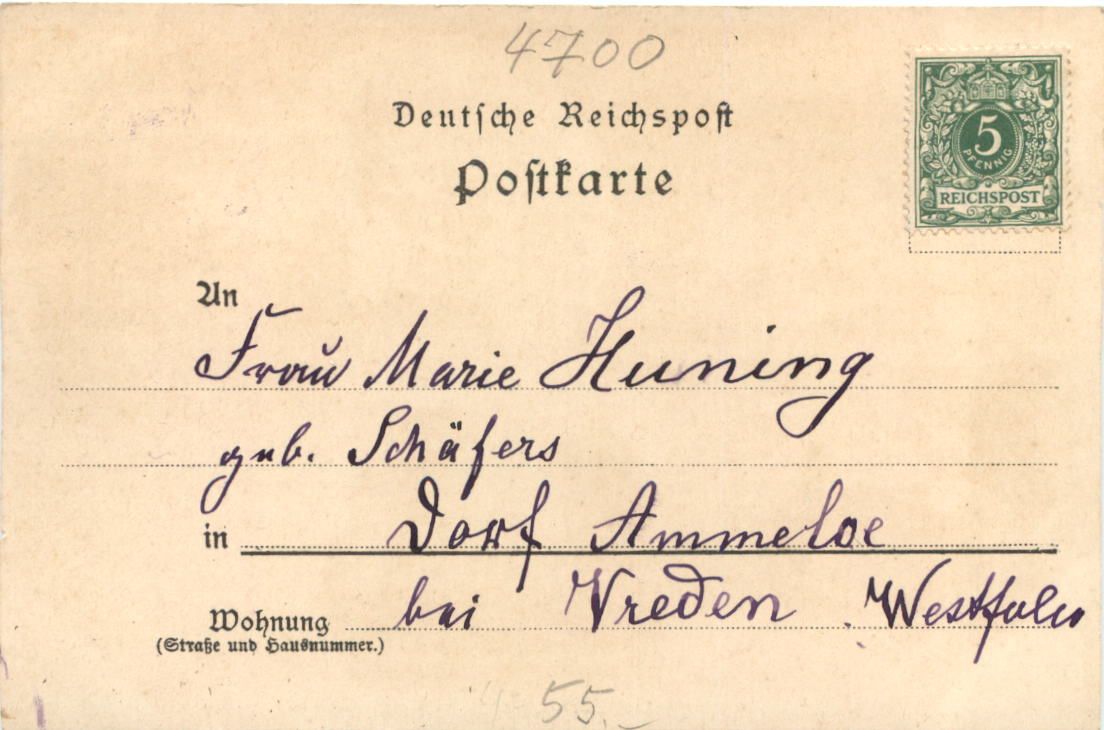 4700
Deutsche Reichspost
Postkarte
5
PFENNIG
REICHSPOST
An
Frau Marie Huning
geb. Schäfers
in Dorf Ammeloe
Wohnung bei Vreden Westfalen
(Straße und Hausnummer.)
55.-